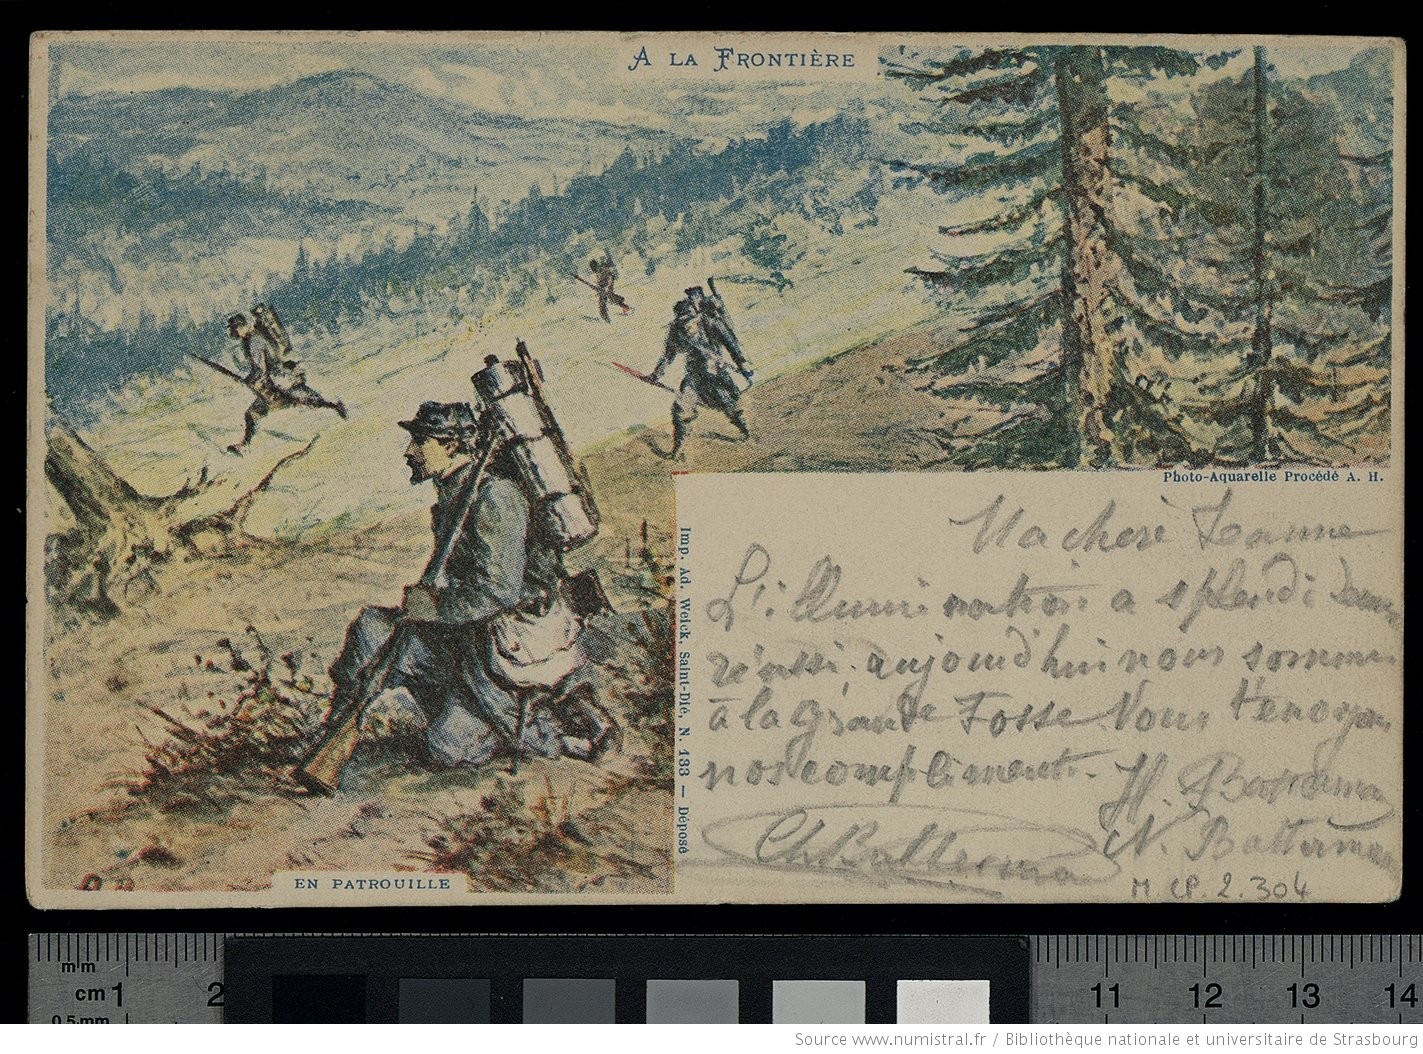 A LA FRONTIÈRE
Photo-Aquarelle Procédé A. H.
Ma chere Jeanne
L'illumination a splendidem
réussi, aujourd'hui nous somme
à la grande Fosse Nous t'envoyons
nos compliments.
H. Batterma
N. Batterman
Ch Batterma
M. CP. 2. 304
Imp. Ad. Weick, Saint-Dié, N. 133 — Déposé
EN PATROUILLE
mm
cm 1 2 11 12 13 14
0.5 mm
Source www.numistral.fr / Bibliothèque nationale et universitaire de Strasbourg